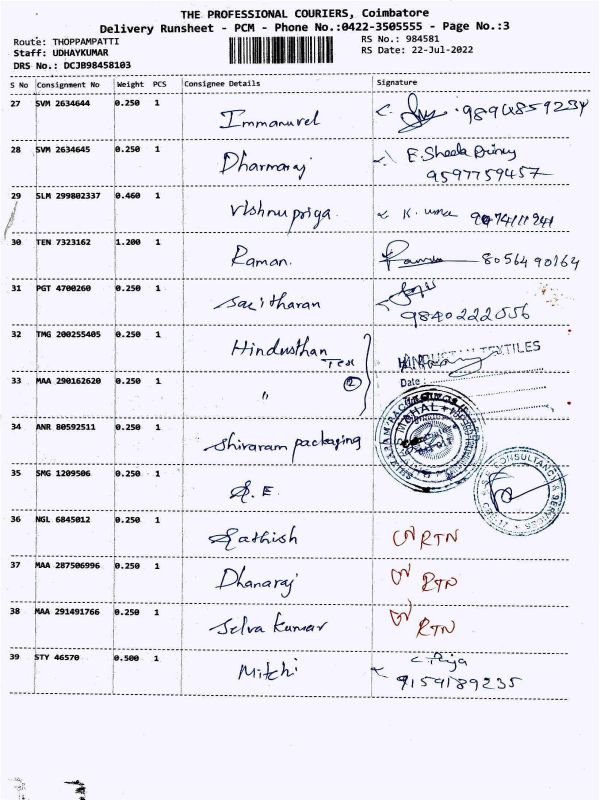 THE PROFESSIONAL COURIERS, Coimbatore
Delivery Runsheet - PCM - Phone No.:0422-3505555 - Page No.:3
Route: THOPPAMPATTI RS No.: 984581
Staff: UDHAYKUMAR RS Date: 22-Jul-2022
DRS No.: DCJB98458103
S No Consignment No Weight PCS Consignee Details Signature
27 SVM 2634644 0.250 1 Immanuvel
28 SVM 2634645 0.250 1 Dharmaraj E. Sheela
9597759457
29 SLM 299802337 0.460 1 Vishnupriya K. uma
30 TEN 7323162 1.200 1 Raman. 8056490164
31 PGT 4700260 0.250 1 Sasitharan
9840222056
32 TMG 200255405 0.250 1 Hindusthan HINDUSTAN TEXTILES
Tex
33 MAA 290162620 0.250 1 " 2 Date :
34 ANR 80592511 0.250 1 Shivaram packaging
35 SMG 1209506 0.250 1 S. E CONSULTANCY & SERVICES
36 NGL 6845012 0.250 1 Sathish RTN
37 MAA 287506996 0.250 1 Dhanaraj RTN
38 MAA 291491766 0.250 1 Selva kumar RTN
39 STY 46570 0.500 1 Mitchi
9159189235